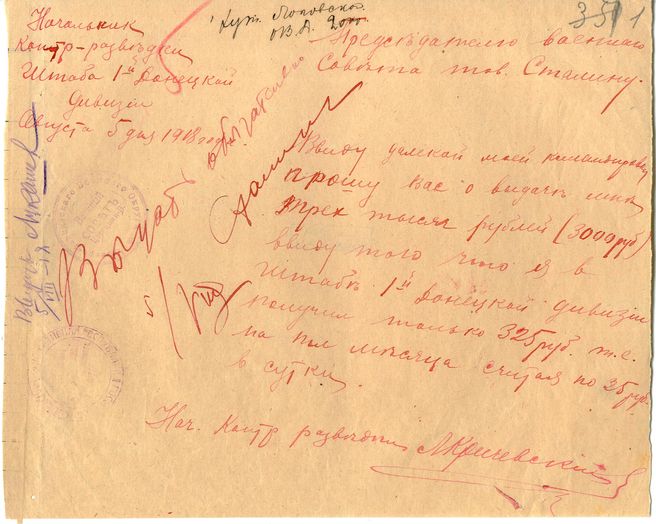 351
Начальник
Контр-разведки
Штаба 1й Донецкой
дивизіи
Августа 5 дня 1918 года
Председателю военнаго
Совета тов. Сталину.
Ввиду далекой моей командировки
прошу Вас о выдаче мне
трех тысяч рублей (3000 руб)
ввиду того что я в
Штабе 1й Донецкой дивизіи
получил только 325 руб. т.е.
на пол месяца считая по 25 руб.
в сутки.
Нач. Контр разведки АКричевский
Выдать обязательно
Сталин
5/VIII